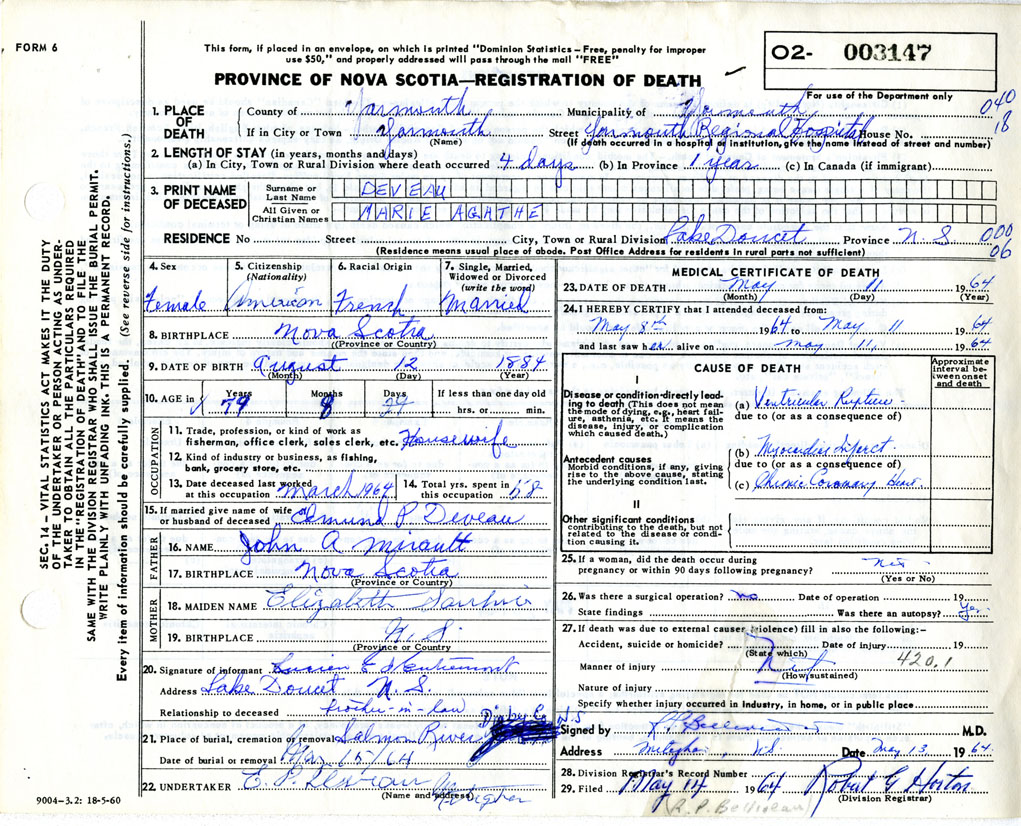 FORM 6
This form, if placed in an envelope, on which is printed "Dominion Statistics – Free, penalty for improper
use $50," and properly addressed will pass through the mail "FREE"
PROVINCE OF NOVA SCOTIA—REGISTRATION OF DEATH
O2- 003147
For use of the Department only
040
18
1. PLACE OF DEATH
County of Yarmouth Municipality of Yarmouth
If in City or Town Yarmouth Street Yarmouth Regional Hospital House No.
(Name) (If death occurred in a hospital or institution, give the name instead of street and number)
2. LENGTH OF STAY (in years, months and days)
(a) In City, Town or Rural Division where death occurred 4 days (b) In Province 1 year (c) In Canada (if immigrant)
3. PRINT NAME OF DECEASED
Surname or Last Name DEVEAU
All Given or Christian Names MARIE AGATHE
RESIDENCE No Street City, Town or Rural Division Lake Doucet Province N. S. 000
06
(Residence means usual place of abode. Post Office Address for residents in rural parts not sufficient)
4. Sex Female
5. Citizenship (Nationality) American
6. Racial Origin French
7. Single, Married, Widowed or Divorced (write the word) Married
8. BIRTHPLACE Nova Scotia
(Province or Country)
9. DATE OF BIRTH August 12 1884
(Month) (Day) (Year)
10. AGE in Years 79 Months 8 Days 29 If less than one day old
hrs. or min.
OCCUPATION
11. Trade, profession, or kind of work as
fisherman, office clerk, sales clerk, etc. Housewife
12. Kind of industry or business, as fishing,
bank, grocery store, etc.
13. Date deceased last worked
at this occupation March 1964
14. Total yrs. spent in
this occupation 58
15. If married give name of wife
or husband of deceased Edmund P. Deveau
FATHER
16. NAME John A Mirault
17. BIRTHPLACE Nova Scotia
(Province or Country)
MOTHER
18. MAIDEN NAME Elizabeth
19. BIRTHPLACE N. S.
(Province or Country)
20. Signature of informant Lucien E d'Entremont
Address Lake Doucet N. S.
Relationship to deceased brother-in-law
21. Place of burial, cremation or removal Salmon River Digby Co N.S
Date of burial or removal May 15/64
22. UNDERTAKER E. P. Deveau Meteghan
(Name and address)
9004–3.2: 18-5-60
MEDICAL CERTIFICATE OF DEATH
23. DATE OF DEATH May 11 1964
(Month) (Day) (Year)
24. I HEREBY CERTIFY that I attended deceased from:
May 8th 1964 to May 11 1964
and last saw her alive on May 11, 1964
CAUSE OF DEATH
Approximate interval between onset and death
I
Disease or condition directly leading to death (This does not mean the mode of dying, e.g., heart failure, asthenia, etc. It means the disease, injury, or complication which caused death.)
(a) Ventricular Rupture
due to (or as a consequence of)
Antecedent causes
Morbid conditions, if any, giving rise to the above cause, stating the underlying condition last.
(b) Myocardial Infarct
due to (or as a consequence of)
(c) Chronic Coronary Heart
II
Other significant conditions
contributing to the death, but not related to the disease or condition causing it.
25. If a woman, did the death occur during
pregnancy or within 90 days following pregnancy?
(Yes or No)
26. Was there a surgical operation? No Date of operation 19
State findings Was there an autopsy? Yes
27. If death was due to external causes (violence) fill in also the following:–
Accident, suicide or homicide? Date of injury 19
(State which) 420.1
Manner of injury
(How sustained)
Nature of injury
Specify whether injury occurred in industry, in home, or in public place
Signed by M.D.
Address Meteghan, N.S. Date May 13 1964
28. Division Registrar's Record Number
29. Filed May 14 1964 Robert G Horton
(Division Registrar)
(R. P. Belliveau)
SEC. 14—VITAL STATISTICS ACT MAKES IT THE DUTY
OF THE UNDERTAKER OR PERSON ACTING AS UNDER-
TAKER TO OBTAIN ALL THE PARTICULARS REQUIRED
IN THE "REGISTRATION OF DEATH" AND TO FILE THE
SAME WITH THE DIVISION REGISTRAR WHO SHALL ISSUE THE BURIAL PERMIT.
WRITE PLAINLY WITH UNFADING INK. THIS IS A PERMANENT RECORD.
Every item of information should be carefully supplied. (See reverse side for instructions.)